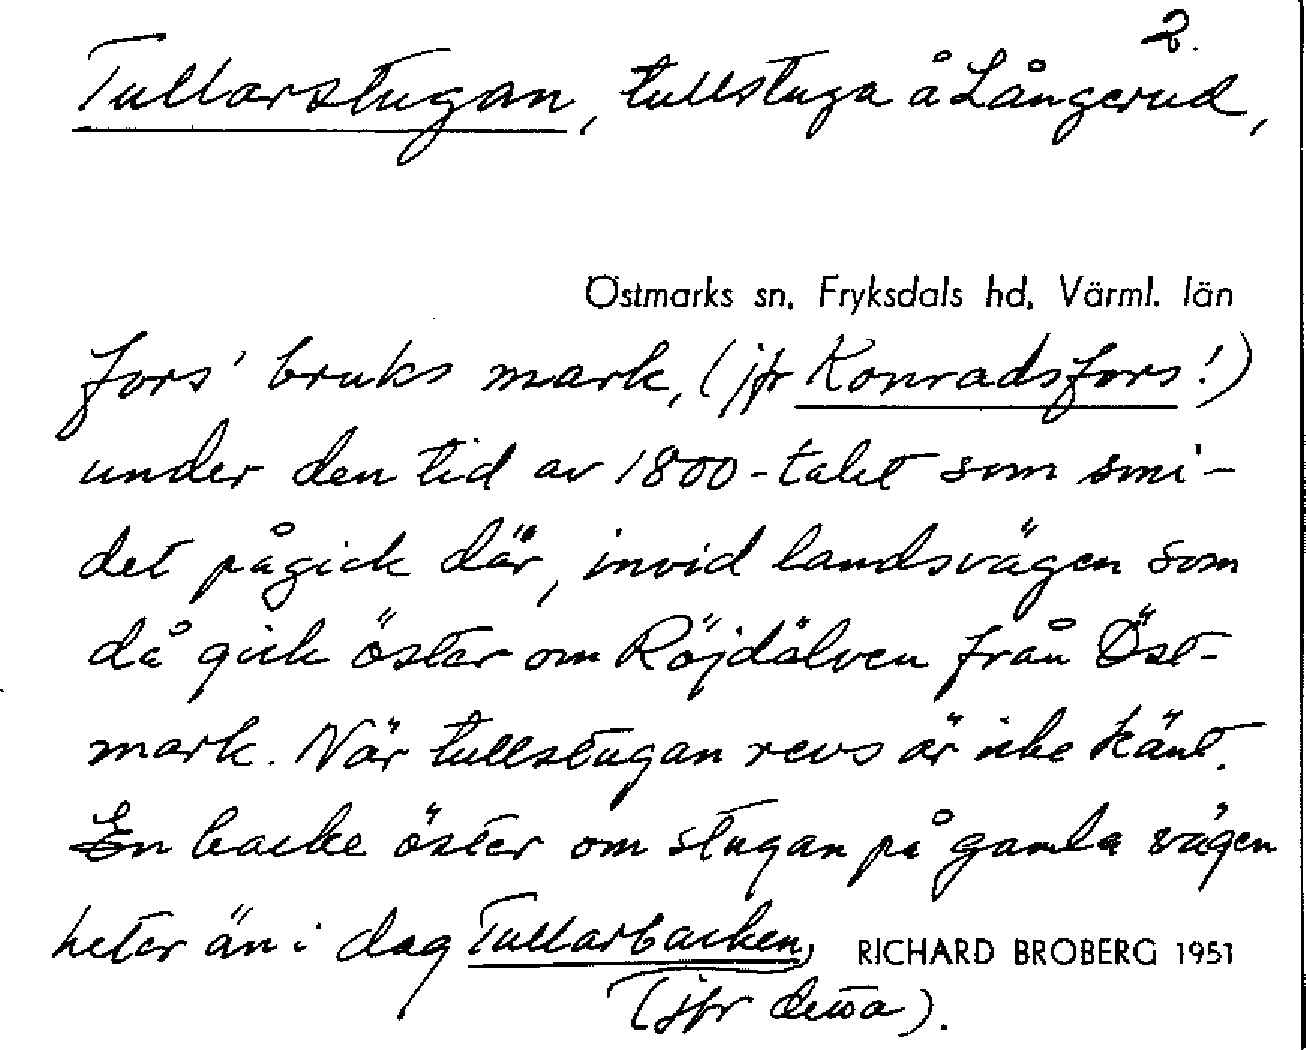 2.
Tullarstugan, tullstuga å Långerud,
Östmarks sn. Fryksdals hd. Värml. län
fors' bruks mark, (jfr Konradsfors!)
under den tid av 1800-talet som smi-
det pågick där, invid landsvägen som
då gick öster om Röjdälven från Öst-
mark. När tullstugan revs är icke känt.
En backe öster om stugan på gamla vägen
heter än i dag Tullarbacken, RICHARD BROBERG 1951
(jfr dessa).